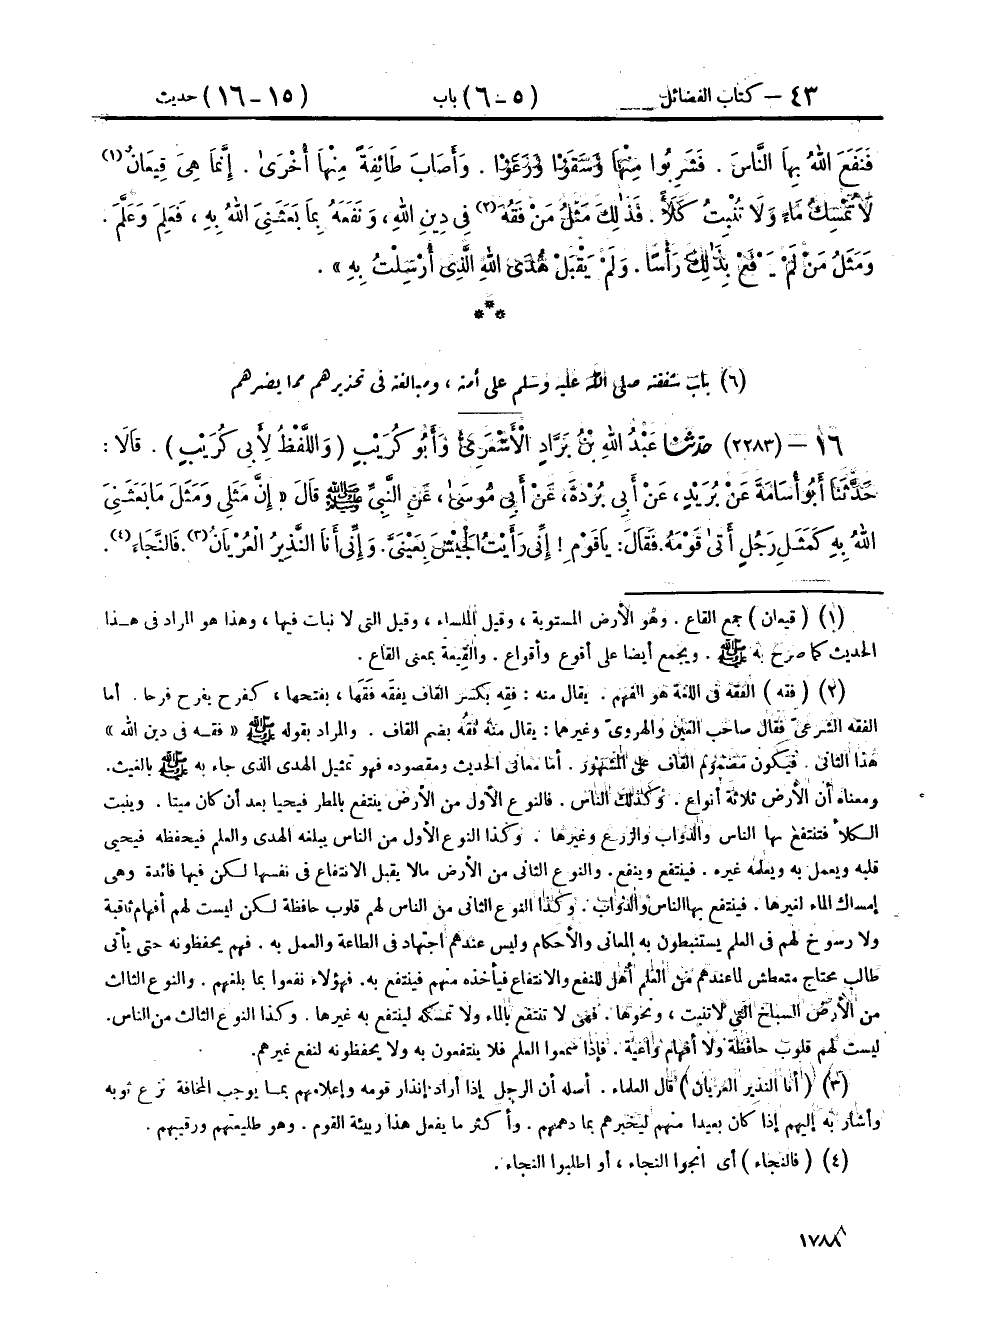 ٤٣ – كتاب الفضائل (٥ – ٦) باب (١٥ – ١٦) حديث
فَنَفَعَ اللهُ بِهَا النَّاسَ . فَشَرِبُوا مِنْهَا وَسَقَوْا وَرَعَوْا . وَأَصَابَ طَائِفَةً مِنْهَا أُخْرَىٰ . إِنَّمَا هِيَ قِيعَانٌ(١)
لَا تُمْسِكُ مَاءً وَلَا تُنْبِتُ كَلَأً . فَذَٰلِكَ مَثَلُ مَنْ فَقُهَ(٢) فِي دِينِ اللهِ ، وَنَفَعَهُ بِمَا بَعَثَنِيَ اللهُ بِهِ ، فَعَلِمَ وَعَلَّمَ .
وَمَثَلُ مَنْ لَمْ يَرْفَعْ بِذَٰلِكَ رَأْسًا . وَلَمْ يَقْبَلْ هُدَى اللهِ الَّذِي أُرْسِلْتُ بِهِ » .
***
(٦) باب شفقته صلى الله عليه وسلم على أمته ، ومبالغته فى تحذيرهم مما يضرهم
١٦ – (٢٢٨٣) حدثنا عَبْدُ اللهِ بْنُ بَرَّادٍ الْأَشْعَرِيُّ وَأَبُو كُرَيْبٍ ( وَاللَّفْظُ لِأَبِي كُرَيْبٍ ) . قَالَا :
حَدَّثَنَا أَبُو أُسَامَةَ عَنْ بُرَيْدٍ ، عَنْ أَبِي بُرْدَةَ ، عَنْ أَبِي مُوسَىٰ ، عَنِ النَّبِيِّ ﷺ قَالَ « إِنَّ مَثَلِي وَمَثَلَ مَا بَعَثَنِيَ
اللهُ بِهِ كَمَثَلِ رَجُلٍ أَتَىٰ قَوْمَهُ. فَقَالَ : يَا قَوْمِ ! إِنِّي رَأَيْتُ الْجَيْشَ بِعَيْنَيَّ. وَإِنِّي أَنَا النَّذِيرُ الْعُرْيَانُ(٣). فَالنَّجَاءَ(٤).
(١) ( قيعان ) جمع القاع . وهو الأرض المستوية ، وقيل الملساء ، وقيل التى لا نبات فيها ، وهذا هو المراد فى هـذا
الحديث كما صرح به ﷺ . ويجمع أيضا على أقوع وأقواع . والقيعة بمعنى القاع .
(٢) ( فقه ) الفقه فى اللغة هو الفهم . يقال منه : فقه بكسر القاف يفقه فقَها ، بفتحها ، كفرح يفرح فرحا . أما
الفقه الشرعىّ فقال صاحب العين والهروىّ وغيرهما : يقال منه فقُه بضم القاف . والمراد بقوله ﷺ « فقـه فى دين الله »
هذا الثانى . فيكون مضموم القاف على المشهور . أما معانى الحديث ومقصوده فهو تمثيل الهدى الذى جاء به ﷺ بالغيث.
ومعناه أن الأرض ثلاثة أنواع . وكذلك الناس . فالنوع الأول من الأرض ينتفع بالمطر فيحيا بعد أن كان ميتا . وينبت
الكلأ فتنتفع بها الناس والدواب والزرع وغيرها . وكذا النوع الأول من الناس يبلغه الهدى والعلم فيحفظه فيحيى
قلبه ويعمل به ويعلمه غيره . فينتفع وينفع. والنوع الثانى من الأرض مالا يقبل الانتفاع فى نفسها لكن فيها فائدة وهى
إمساك الماء لغيرها . فينتفع بها الناس والدواب . وكذا النوع الثانى من الناس لهم قلوب حافظة لكن ليست لهم أفهام ثاقبة
ولا رسوخ لهم فى العلم يستنبطون به المعانى والأحكام وليس عندهم اجتهاد فى الطاعة والعمل به . فهم يحفظونه حتى يأتى
طالب محتاج متعطش لما عندهم من العلم أهل للنفع والانتفاع فيأخذه منهم فينتفع به. فهؤلاء نفعوا بما بلغهم . والنوع الثالث
من الأرض السباخ التى لا تنبت ، ونحوها . فهى لا تنتفع بالماء ولا تمسكه لينتفع به غيرها . وكذا النوع الثالث من الناس.
ليست لهم قلوب حافظة ولا أفهام واعية . فإذا سمعوا العلم فلا ينتفعون به ولا يحفظونه لنفع غيرهم.
(٣) ( أنا النذير العريان ) قال العلماء . أصله أن الرجل إذا أراد إنذار قومه وإعلامهم بمـا يوجب المخافة نزع ثوبه
وأشار به إليهم إذا كان بعيدا منهم ليخبرهم بما دهمهم . وأكثر ما يفعل هذا ربيئة القوم . وهو طليعتهم ورقيبهم .
(٤) ( فالنجاء ) أى انجوا النجاء ، أو اطلبوا النجاء .
١٧٨٨